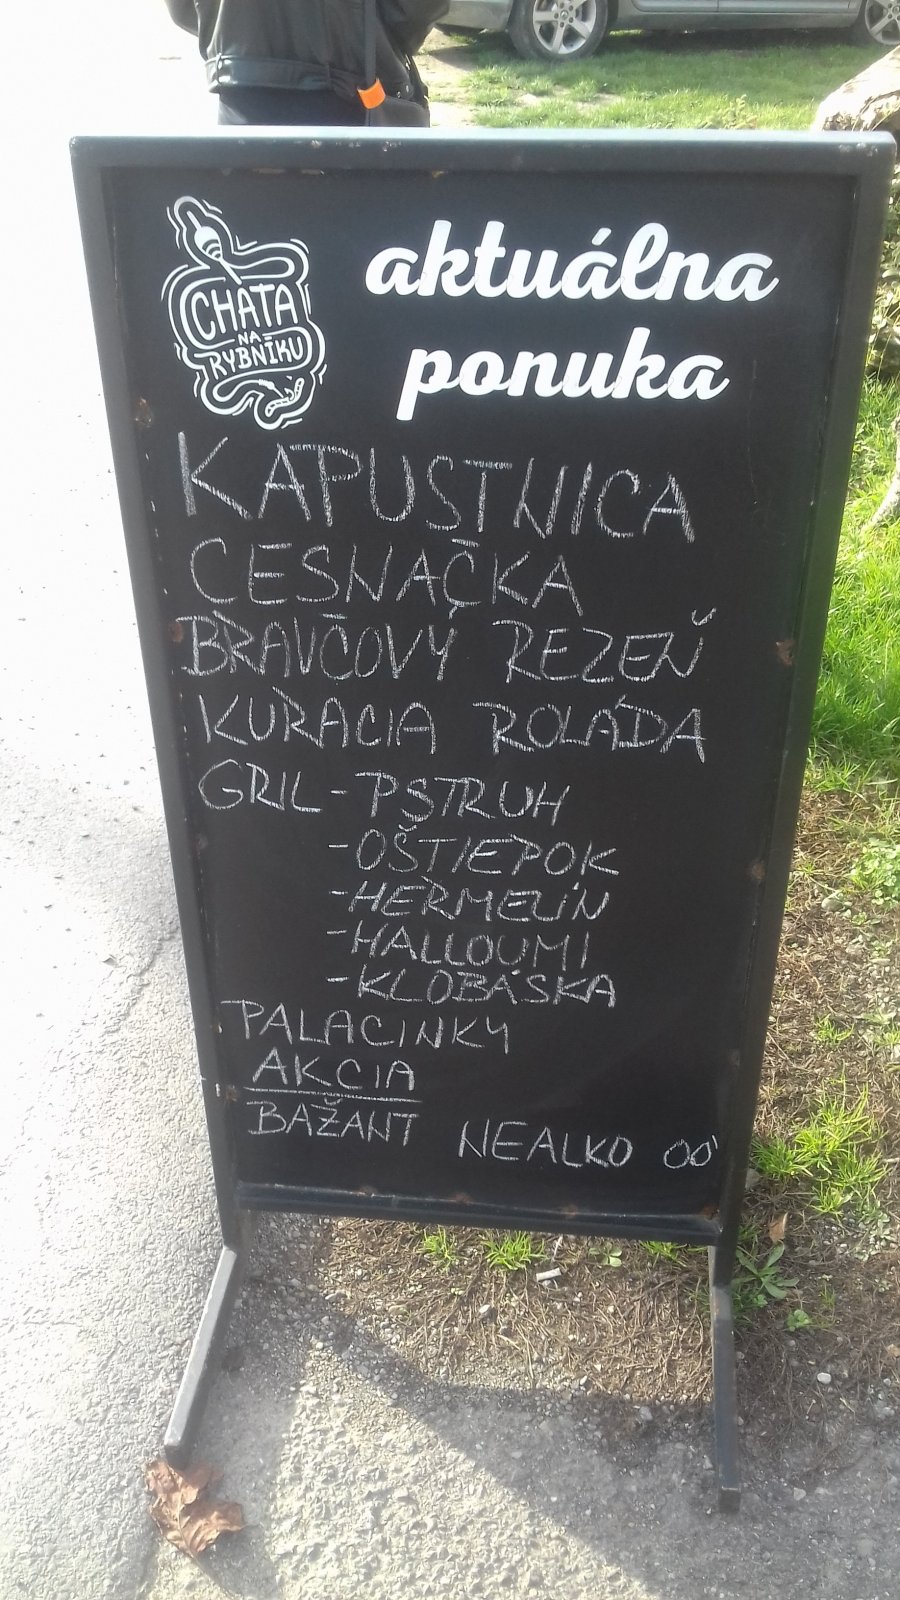 CHATA
NA
RYBNÍKU
aktuálna
ponuka
KAPUSTNICA
CESNAČKA
BRAVČOVÝ REZEŇ
KURACIA ROLÁDA
GRIL - PSTRUH
- OŠTIEPOK
- HERMELÍN
- HALLOUMI
- KLOBÁSKA
PALACINKY
AKCIA
BAŽANT NEALKO 00'